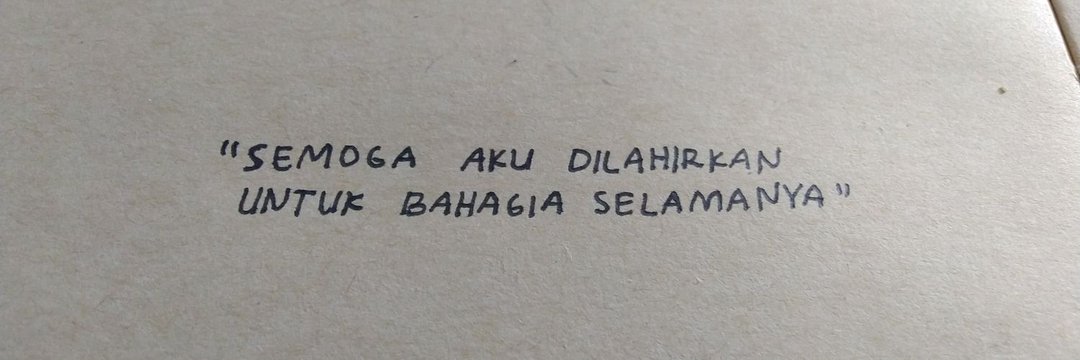 "SEMOGA AKU DILAHIRKAN
UNTUK BAHAGIA SELAMANYA"